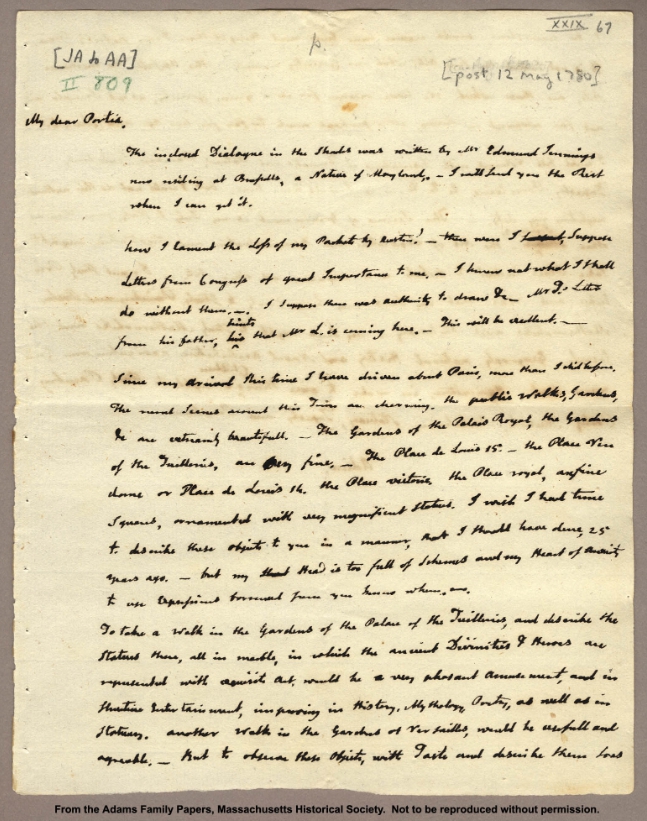 XXIX 67
p.
[JA to AA]
II 809
[post 12 May 1780]
My dear Portia,
The inclosed Dialogue in the Shades was written by Mr Edmund Jennings
now residing at Brussells, a Native of Maryland. — I will send you the Rest
when I can get it.
how I lament the Loss of my Packets by Austin! — there were I Suppose
Letters from Congress of great Importance to me. — I know not what I shall
do without them. —. I suppose there was authority to draw &c — Mr D.'s Letter
from his father, hints that Mr L. is coming here. — This will be excellent. —
Since my arrival this time I have driven about Paris, more than I did before.
The rural Scenes around this Town are charming. the public Walks, Gardens,
&c are extreamly beautifull. — The Gardens of the Palais Royal, the Gardens
of the Tuilleries, are very fine. — The Place de Louis 15 — the Place Ven
dome or Place de Louis 14. the Place victoire, the Place royal, are fine
Squares, ornamented with very magnificent Statues. I wish I had time
to describe these objects to you in a manner, that I should have done, 25
years ago. — but my Head is too full of Schemes and my Heart of Anxiety
to use Expressions borrowed from you know whom. —.
To take a Walk in the Gardens of the Palace of the Tuilleries, and describe the
Statues there, all in marble, in which the ancient Divinities & Heroes are
represented with exquisite Art, would be a very pleasant Amusement, and in
structive Entertainment, improving in History, Mythology, Poetry, as well as in
Statuary. another Walk in the Gardens of Versailles, would be usefull and
agreable. — But to observe these Objects, with Taste and describe them
From the Adams Family Papers, Massachusetts Historical Society. Not to be reproduced without permission.